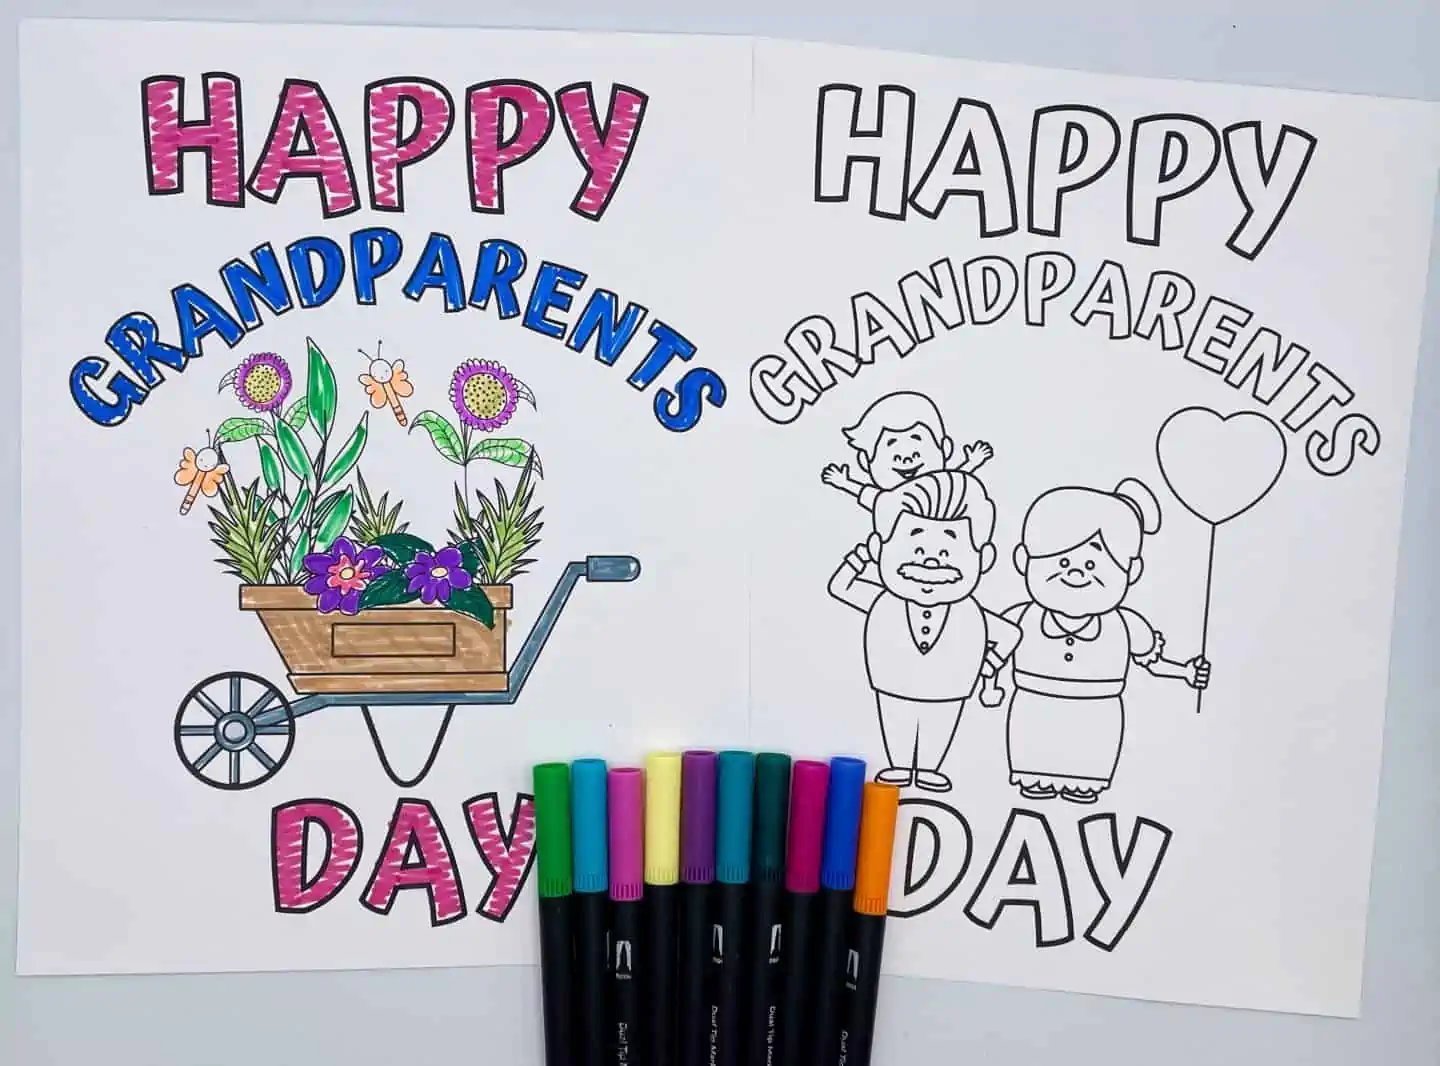 HAPPY
GRANDPARENTS
DAY
HAPPY
GRANDPARENTS
DAY
Dual Tip
Dual Tip
Dual Tip
Dual Ti